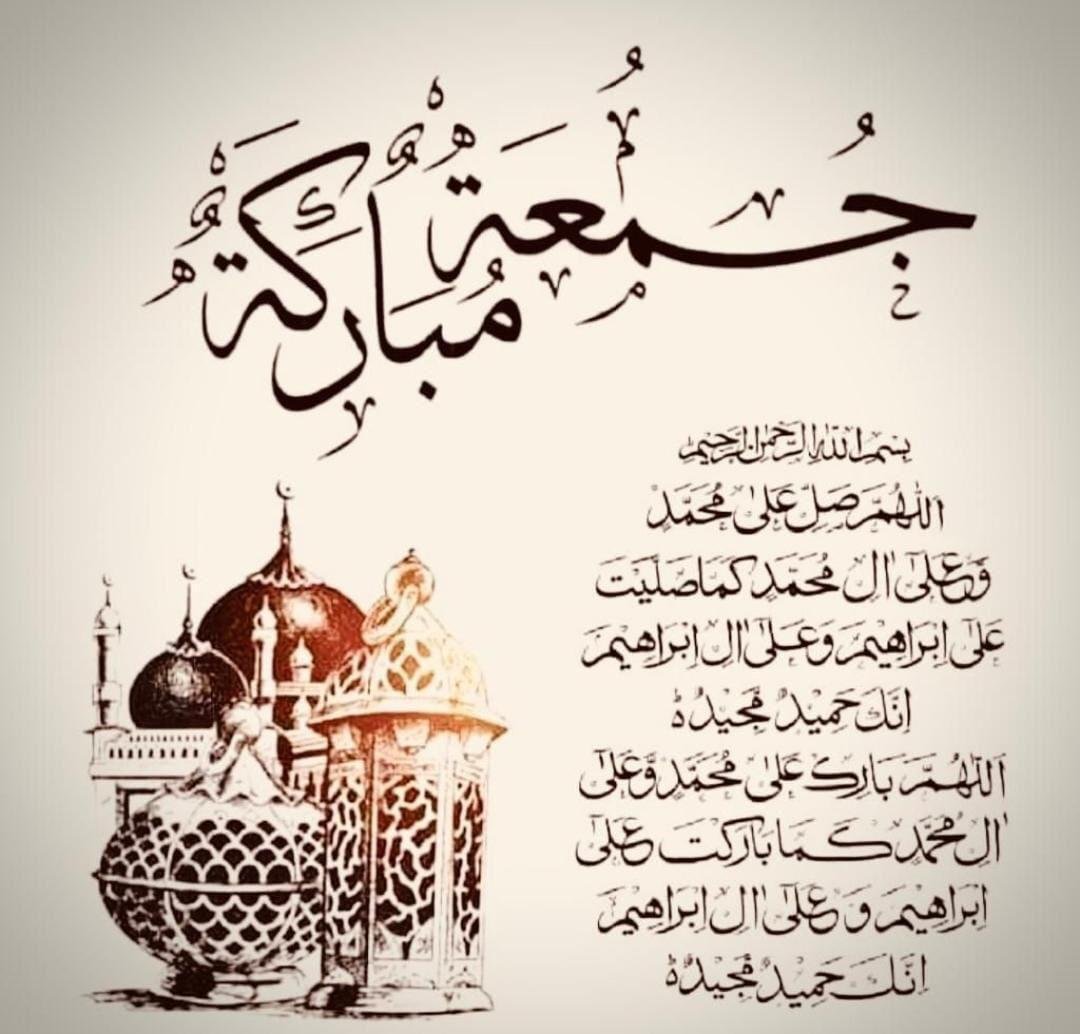 جُمُعَة
مُبَارَكَة
بِسْمِ اللهِ الرَّحْمٰنِ الرَّحِيْمِ
اَللّٰهُمَّ صَلِّ عَلٰى مُحَمَّدٍ
وَّعَلٰٓى اٰلِ مُحَمَّدٍ كَمَا صَلَّيْتَ
عَلٰٓى اِبْرَاهِيْمَ وَعَلٰٓى اٰلِ اِبْرَاهِيْمَ
اِنَّكَ حَمِيْدٌ مَّجِيْدٌ ہ
اَللّٰهُمَّ بَارِكْ عَلٰى مُحَمَّدٍ وَّعَلٰٓى
اٰلِ مُحَمَّدٍ كَمَا بَارَكْتَ عَلٰٓى
اِبْرَاهِيْمَ وَعَلٰٓى اٰلِ اِبْرَاهِيْمَ
اِنَّكَ حَمِيْدٌ مَّجِيْدٌ ہ